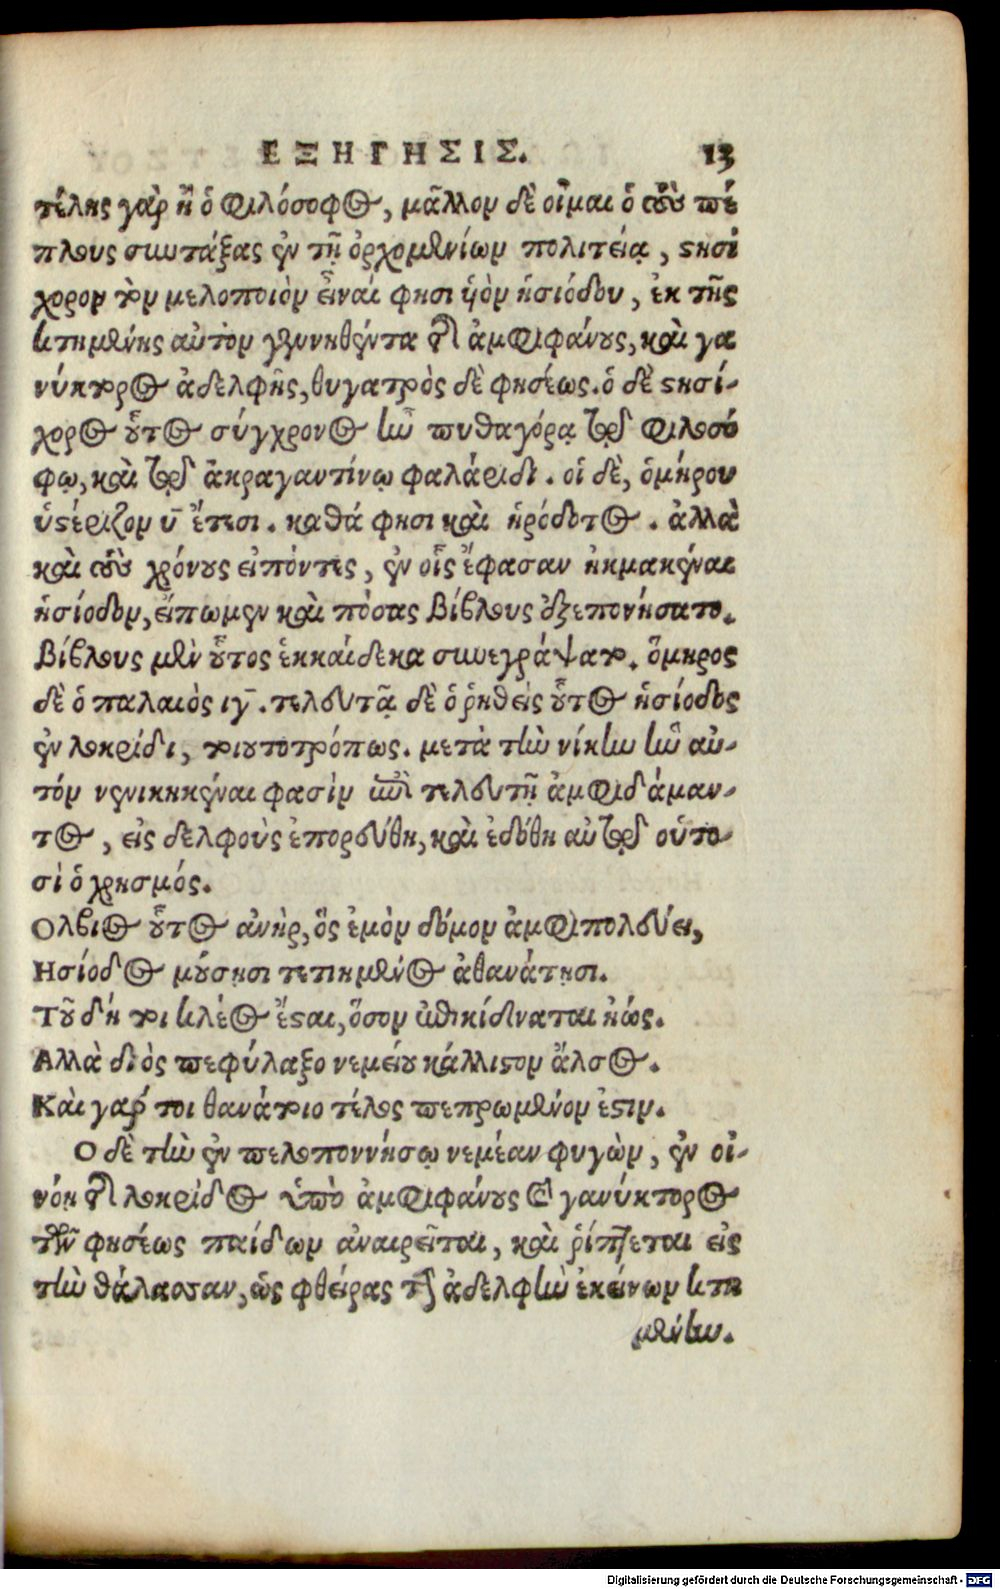 ΕΞΗΓΗΣΙΣ. 13
τέλης γὰρ ἢ ὁ φιλόσοφος, μᾶλλον δὲ οἶμαι ὁ τοὺς πέ
πλους συντάξας ἐν τῇ ὀρχομενίων πολιτείᾳ, στησί
χορον τὸν μελοποιὸν εἶναί φησι ὑὸν ἡσιόδου, ἐκ τῆς
κτημένης αὐτὸν γεννηθέντα τῆς ἀμφιφάνους, καὶ γα
νύκτορος ἀδελφῆς, θυγατρὸς δὲ φησέως. ὁ δὲ στησί-
χορος οὗτος σύγχρονος ἦν πυθαγόρᾳ τῷ φιλοσό
φῳ, καὶ τῷ ἀκραγαντίνῳ φαλάριδι. οἱ δὲ, ὁμήρου
ὑστέριζον υ̅ ἔτεσι. καθά φησι καὶ ἡρόδοτος. ἀλλὰ
καὶ τοὺς χρόνους εἰπόντες, ἐν οἷς ἔφασαν ἠκμακέναι
ἡσίοδον, εἴπωμεν καὶ πόσας βίβλους ἐξεπονήσατο.
βίβλους μὲν οὗτος ἑκκαίδεκα συνεγράψατο. ὅμηρος
δὲ ὁ παλαιὸς ιγ̅. τελευτᾷ δὲ ὁ ῥηθεὶς οὗτος ἡσίοδος
ἐν λοκρίδι, τοιουτοτρόπως. μετὰ τὴν νίκην ἣν αὐ-
τὸν νενικηκέναι φασὶν ἐπὶ τελευτῇ ἀμφιδάμαν-
τος, εἰς δελφοὺς ἐπορεύθη, καὶ ἐδόθη αὐτῷ οὑτο-
σὶ ὁ χρησμός.
Ολβιος οὗτος ἀνὴρ, ὃς ἐμὸν δόμον ἀμφιπολεύει,
Ησίοδος μούσῃσι τετιημένος ἀθανάτῃσι.
Τοῦ δή τοι κλέος ἔσται, ὅσον ἐπικίδναται ἠώς.
Αλλὰ διὸς πεφύλαξο νεμείου κάλλιστον ἄλσος.
Καὶ γάρ τοι θανάτοιο τέλος πεπρωμένον ἐστιν.
Ο δὲ τὴν ἐν πελοποννήσῳ νεμέαν φυγὼν, ἐν οἰ-
νόη τῆς λοκρίδος ὑπὸ ἀμφιφάνους καὶ γανύκτορος
τῶν φησέως παίδων ἀναιρεῖται, καὶ ῥίπτεται εἰς
τὴν θάλασσαν, ὡς φθείρας τὴν ἀδελφὴν ἐκείνων κτη
μένην.
Digitalisierung gefördert durch die Deutsche Forschungsgemeinschaft - DFG